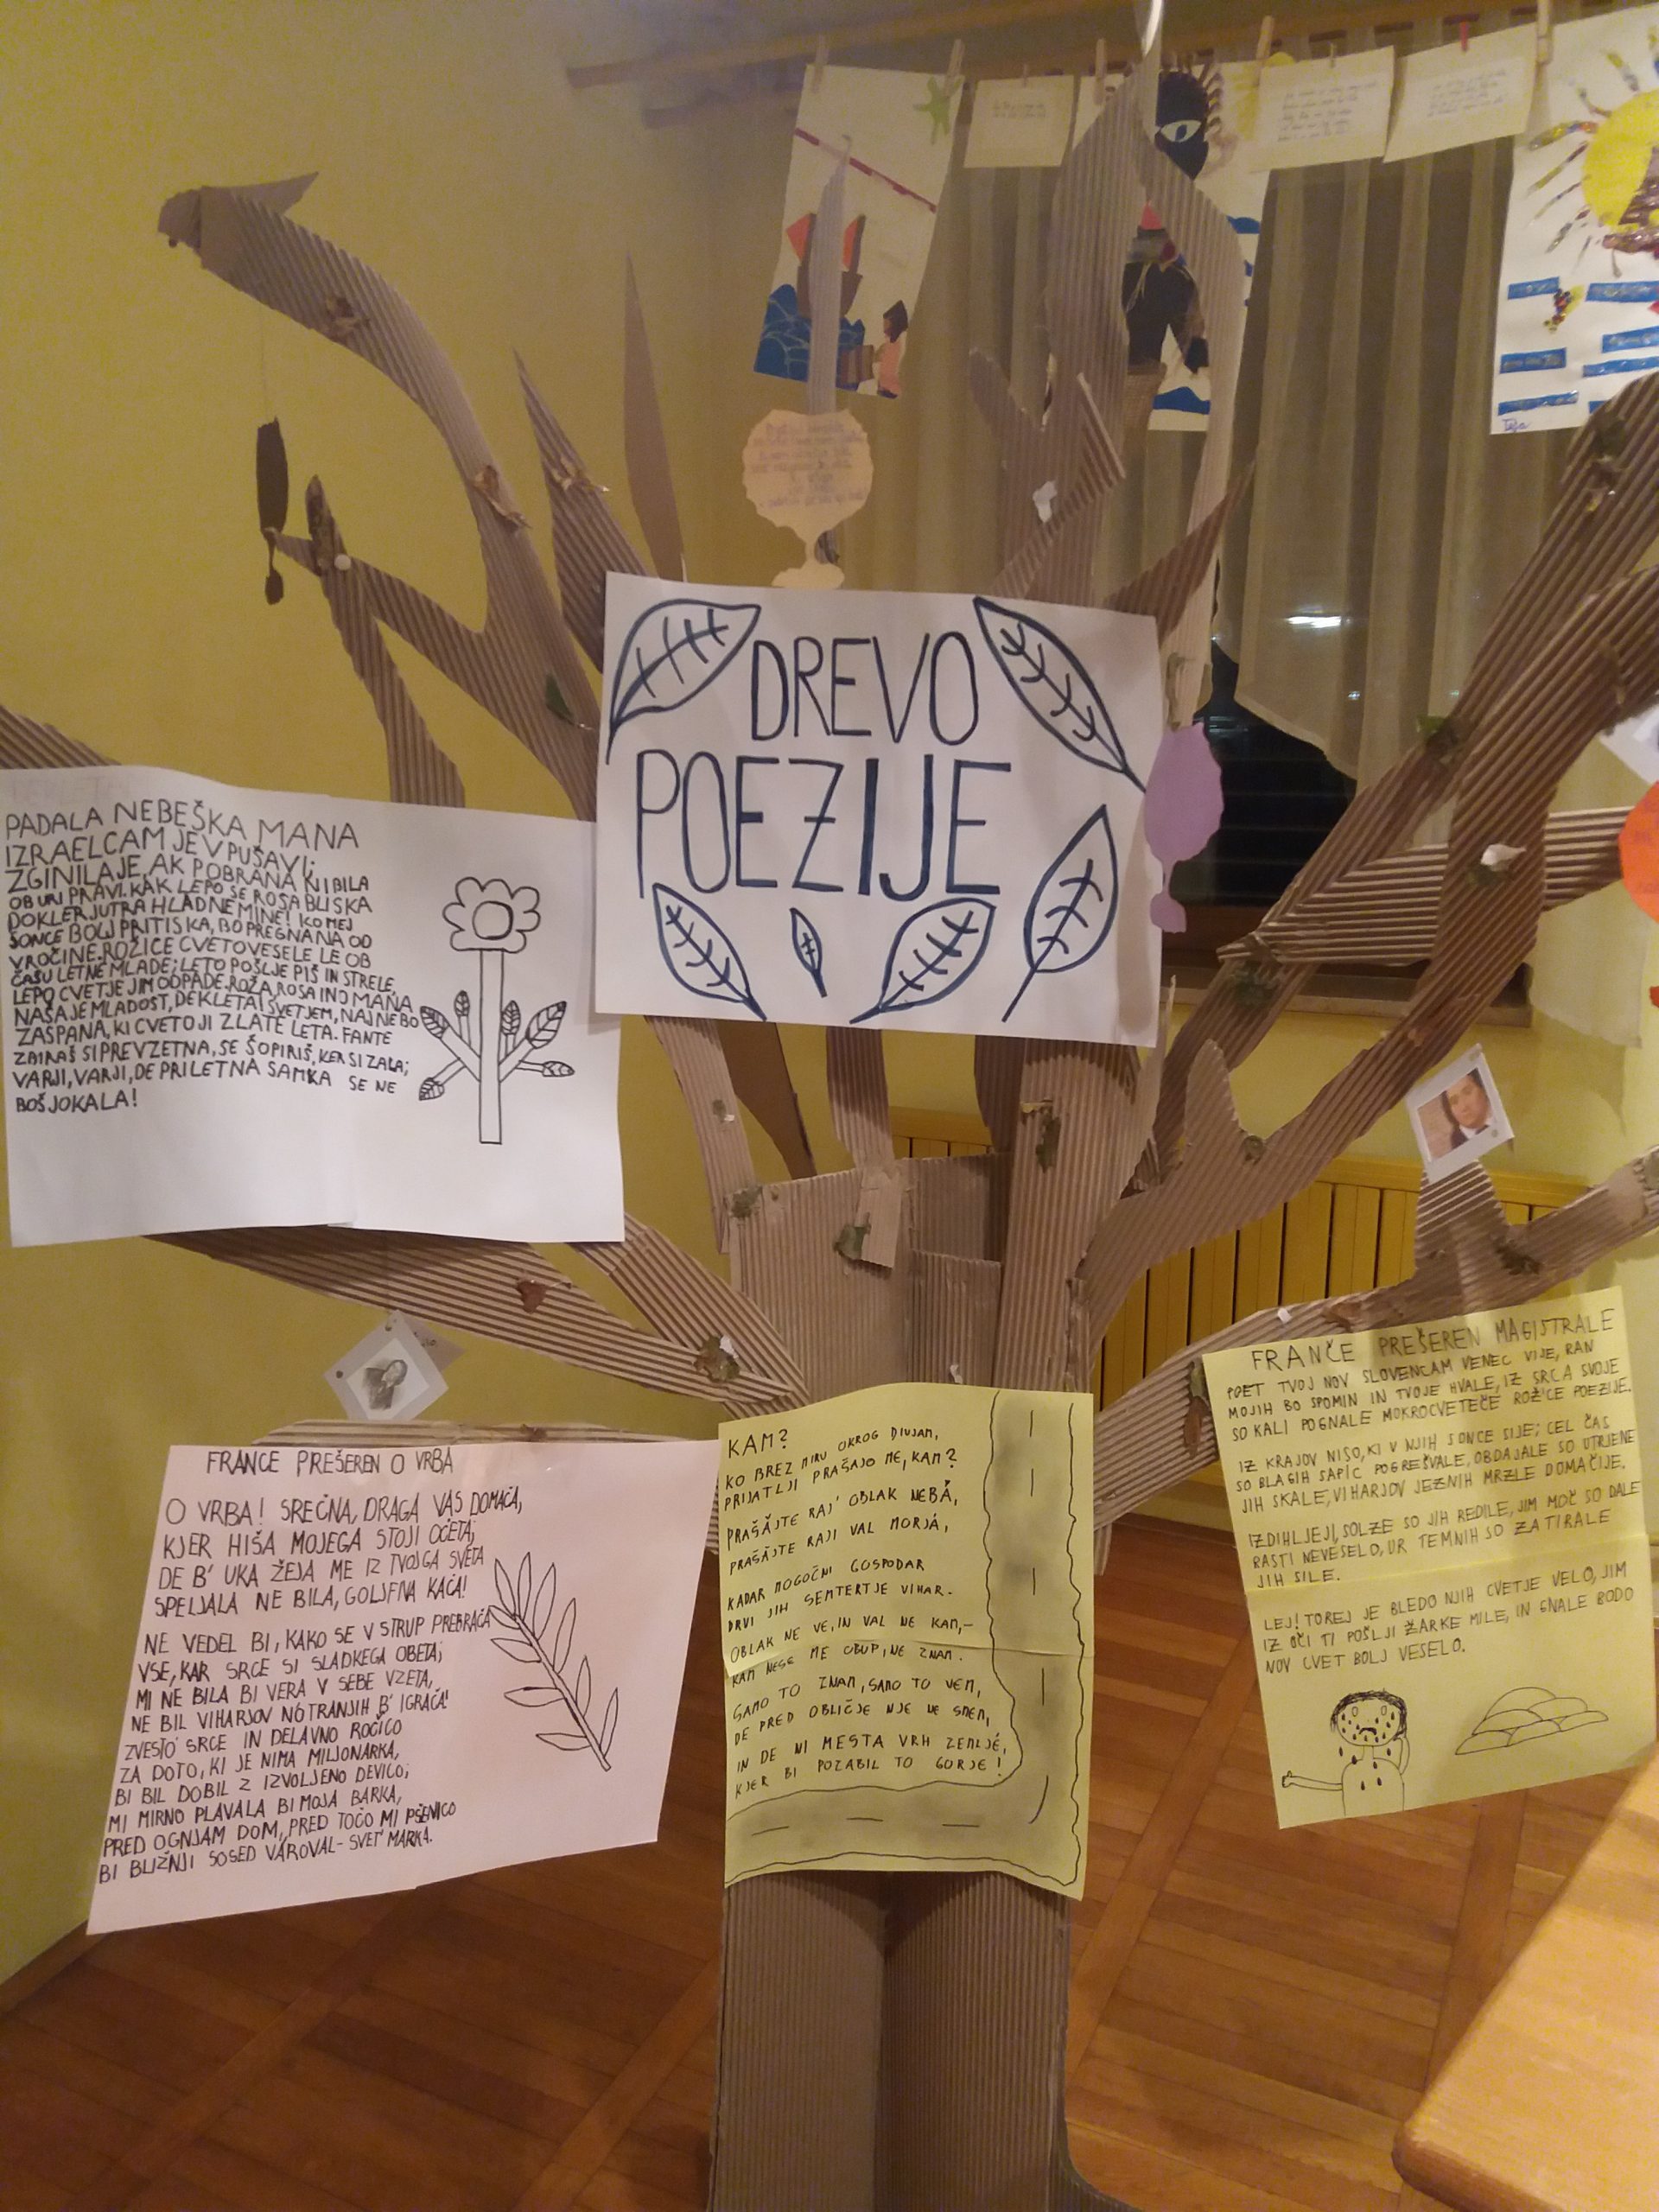 DREVO
POEZIJE
PADALA NEBEŠKA MANA
IZRAELCAM JE V PUŠAVI;
ZGINILA JE, AK POBRANA NI BILA
OB URI PRAVI. KAK LEPO SE ROSA BLISKA
DOKLER JUTRA HLADNE MINE! KO MEJ
ŠONCE BOLJ PRITISKA, BO PREGNANA OD
VROČINE. ROŽICE CVETO VESELE LE OB
ČAŠU LETNE MLADE; LETO POŠLJE PIŠ IN STRELE,
LEPO CVETJE JIM ODPADE. ROŽA, ROSA INO MANA
NAŠA JE MLADOST, DEKLETA! SVETJEM, NAJ NE BO
ZASPANA, KI CVETO JI ZLATE LETA. FANTE
ZBIRAŠ SI PREVZETNA, SE ŠOPIRIŠ, KER SI ZALA;
VARJI, VARJI, DE PRILETNA SAMKA SE NE
BOŠ JOKALA!
FRANCE PREŠEREN O VRBA
O VRBA! SREČNA, DRAGA VAS DOMAČA,
KJER HIŠA MOJEGA STOJI OČETA;
DE B' UKA ŽEJA ME IZ TVOJGA SVETA
SPELJALA NE BILA, GOLJFIVA KAČA!
NE VEDEL BI, KAKO SE V STRUP PREBRAČA
VSE, KAR SRCE SI SLADKEGA OBETA;
MI NE BILA BI VERA V SEBE VZETA,
NE BIL VIHARJOV NOTRANJIH B' IGRAČA!
ZVESTO SRCE IN DELAVNO ROČICO
ZA DOTO, KI JE NIMA MILJONARKA,
BI BIL DOBIL Z IZVOLJENO DEVICO;
MI MIRNO PLAVALA BI MOJA BARKA,
PRED OGNJAM DOM, PRED TOČO MI PŠENICO
BI BLIŽNJI SOSED VÁROVAL - SVET' MARKA.
KAM?
KO BREZ MIRU OKROG DIVJAM,
PRIJATLJI PRAŠAJO ME, KAM?
PRAŠÀJTE RAJ' OBLAK NEBÁ,
PRAŠÀJTE RAJI VAL MORJÁ,
KADAR MOGOČNI GOSPODAR
DRVI JIH SEMTERTJE VIHAR.
OBLAK NE VE, IN VAL NE KAM, -
KAM NESE ME OBUP, NE ZNAM.
SAMO TO ZNAM, SAMO TO VEM,
DE PRED OBLIČJE NJE NE SMEM,
IN DE NI MESTA VRH ZEMLJÉ,
KJER BI POZABIL TO GORJE!
FRANČE PREŠEREN MAGISTRALE
POET TVOJ NOV SLOVENCAM VENEC VIJE, RAN
MOJIH BO SPOMIN IN TVOJE HVALE, IZ SRCA SVOJE
SO KALI POGNALE MOKROCVETEČE ROŽ'CE POEZIJE.
IZ KRAJOV NISO, KI V NJIH SONCE SIJE; CEL ČAS
SO BLAGIH SAPIC POGREŠVALE, OBDAJALE SO UTRJENE
JIH SKALE, VIHARJOV JEZNIH MRZLE DOMAČIJE.
IZDIHLJEJI, SOLZE SO JIH REDILE, JIM MOČ SO DALE
RASTI NEVESELO, UR TEMNIH SO ZATIRALE
JIH SILE.
LEJ! TOREJ JE BLEDO NJIH CVETJE VELO, JIM
IZ OČI TI POŠLJI ŽARKE MILE, IN GNALE BODO
NOV CVET BOLJ VESELO.